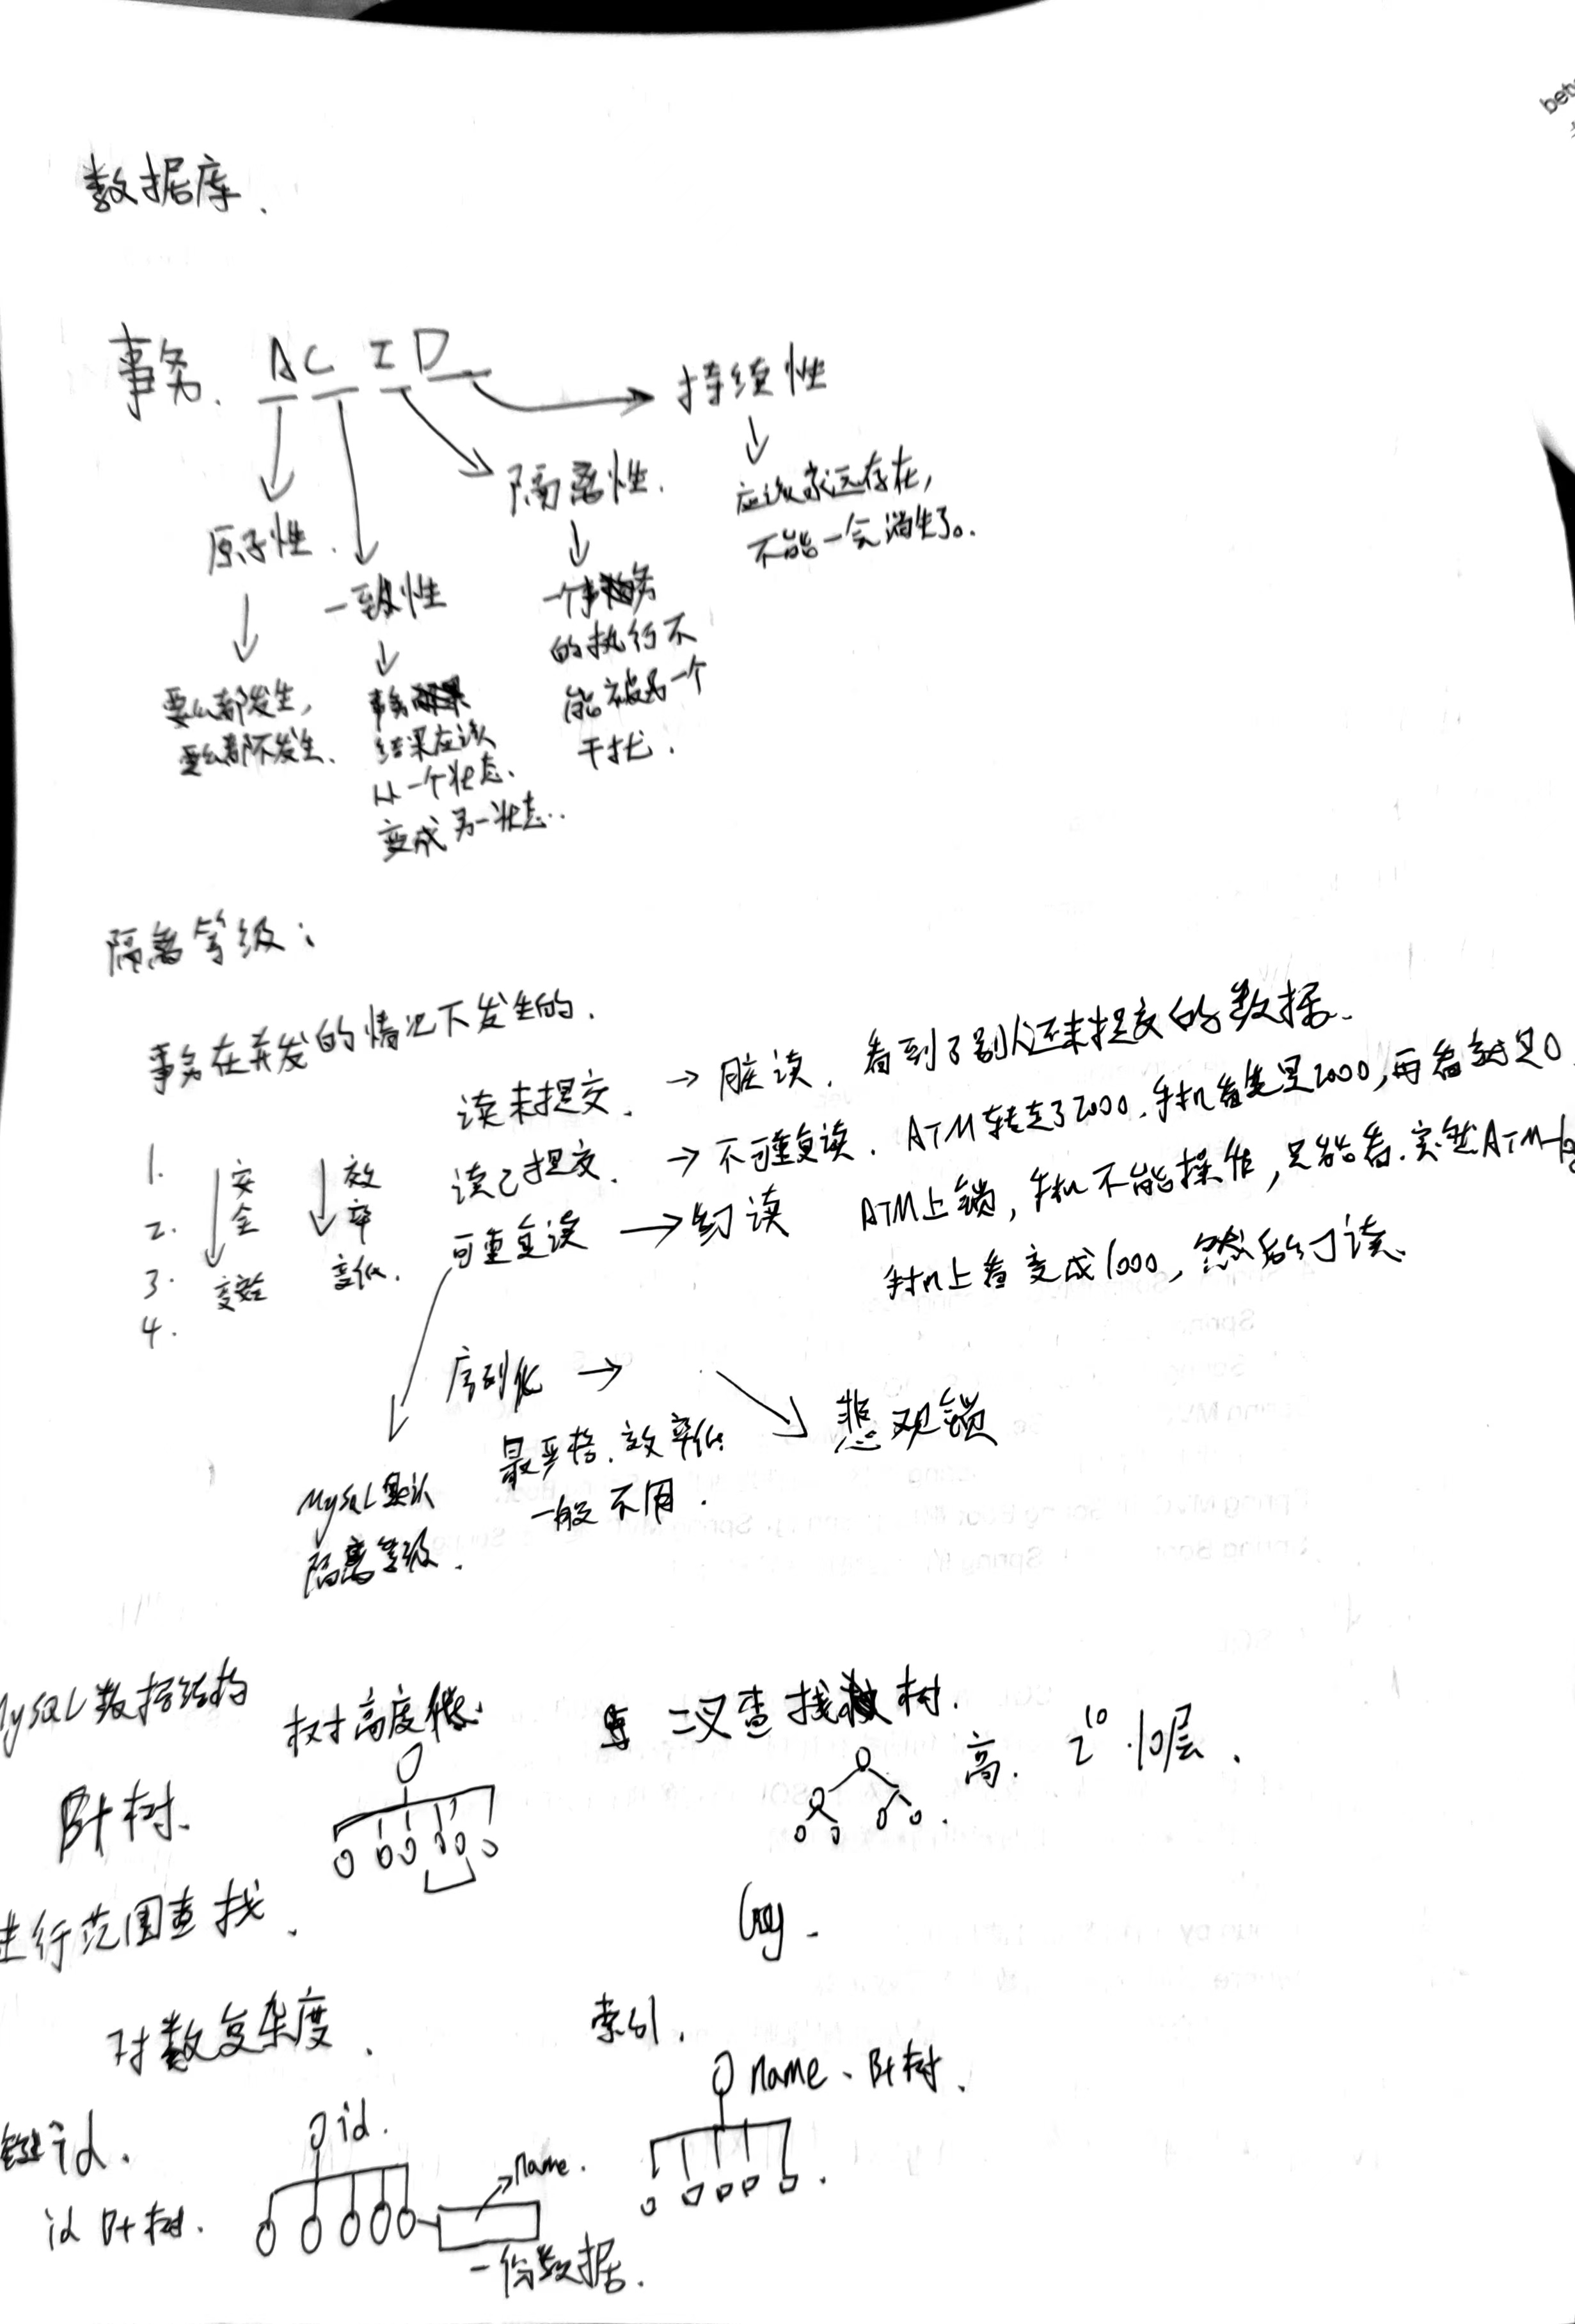 数据库.
事务. A C I D
持续性
应该永远存在,
不能一会消失了。
隔离性.
一个事务
的执行不
能被另一个
干扰.
原子性.
要么都发生,
要么都不发生.
一致性
事务
结果应该
从一个状态.
变成另一状态..
隔离等级:
事务在并发的情况下发生的.
1.
2.
3.
4.
安
全
变
效
率
变低.
读未提交. → 脏读. 看到了别人还未提交的数据.
读已提交. → 不可重复读. ATM转走了2000. 手机看先是2000,再看就是0.
可重复读 → 幻读 ATM上锁,手机不能操作,只能看.突然ATM
手机上看变成1000,然后幻读.
序列化 →
最严格.效率低
一般不用.
悲观锁
MySQL默认
隔离等级.
MySQL数据结构
B+树.
进行范围查找.
对数复杂度.
树高度
二叉查找树.
高. 2^10 .10层.
索引.
name. B+树.
id.
id.
id B+树.
name.
一份数据.